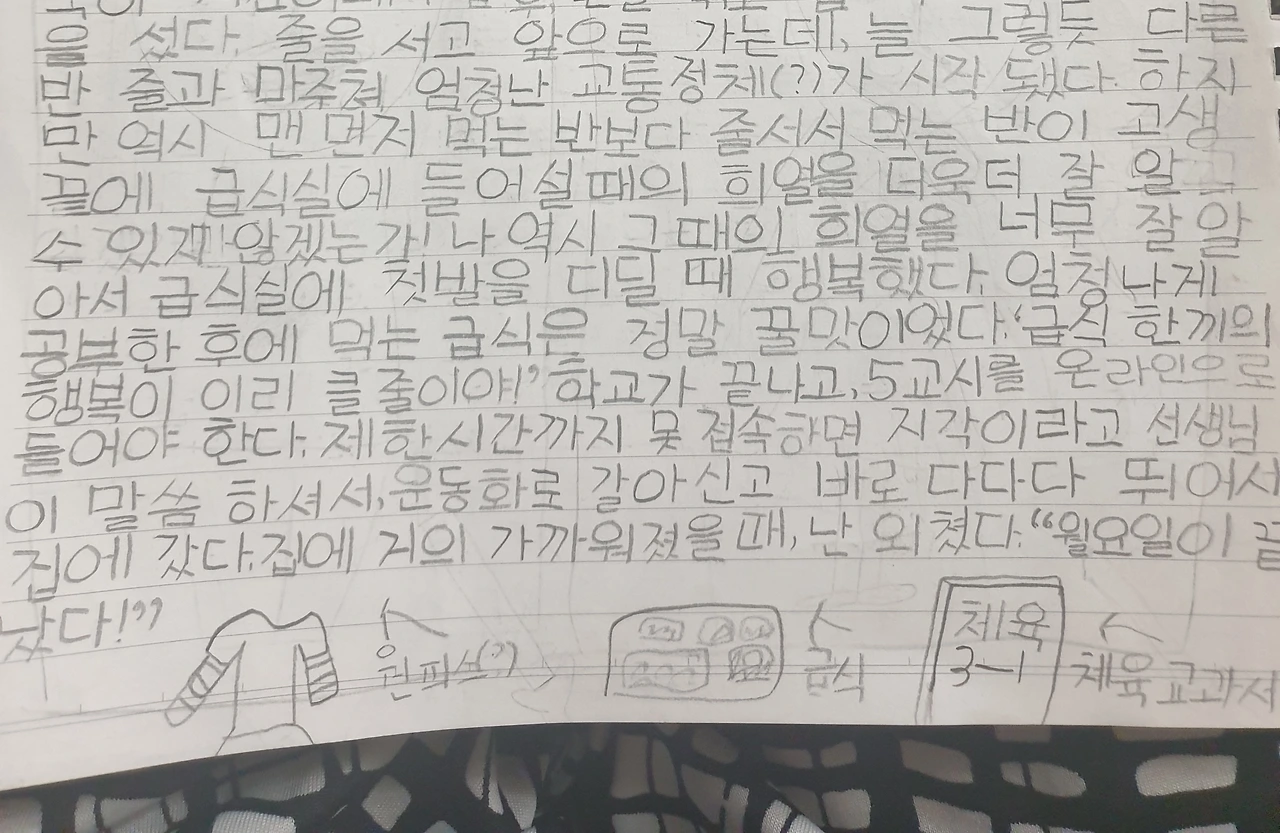 을 섰다. 줄을 서고 앞으로 가는데, 늘 그렇듯 다른
반 줄과 마주쳐 엄청난 교통정체(?)가 시작 됐다. 하지
만 역시 맨 먼저 먹는 반보다 줄서서 먹는 반이 고생
끝에 급식실에 들어설 때의 희열을 더욱 더 잘 알
수 있지 않겠는가! 나 역시 그 때의 희열을 너무 잘 알
아서 급식실에 첫발을 디딜 때 행복했다. 엄청나게
공부한 후에 먹는 급식은 정말 꿀맛이었다. ‘급식 한끼의
행복이 이리 클 줄이야!’ 학교가 끝나고, 5교시를 온라인으로
들어야 한다. 제한시간까지 못 접속하면 지각이라고 선생님
이 말씀 하셔서, 운동화로 갈아신고 바로 다다다 뛰어서
집에 갔다. 집에 거의 가까워졌을 때, 난 외쳤다. “월요일이 끝
났다!”
원피스(?)
급식
체육
3-1
체육 교과서